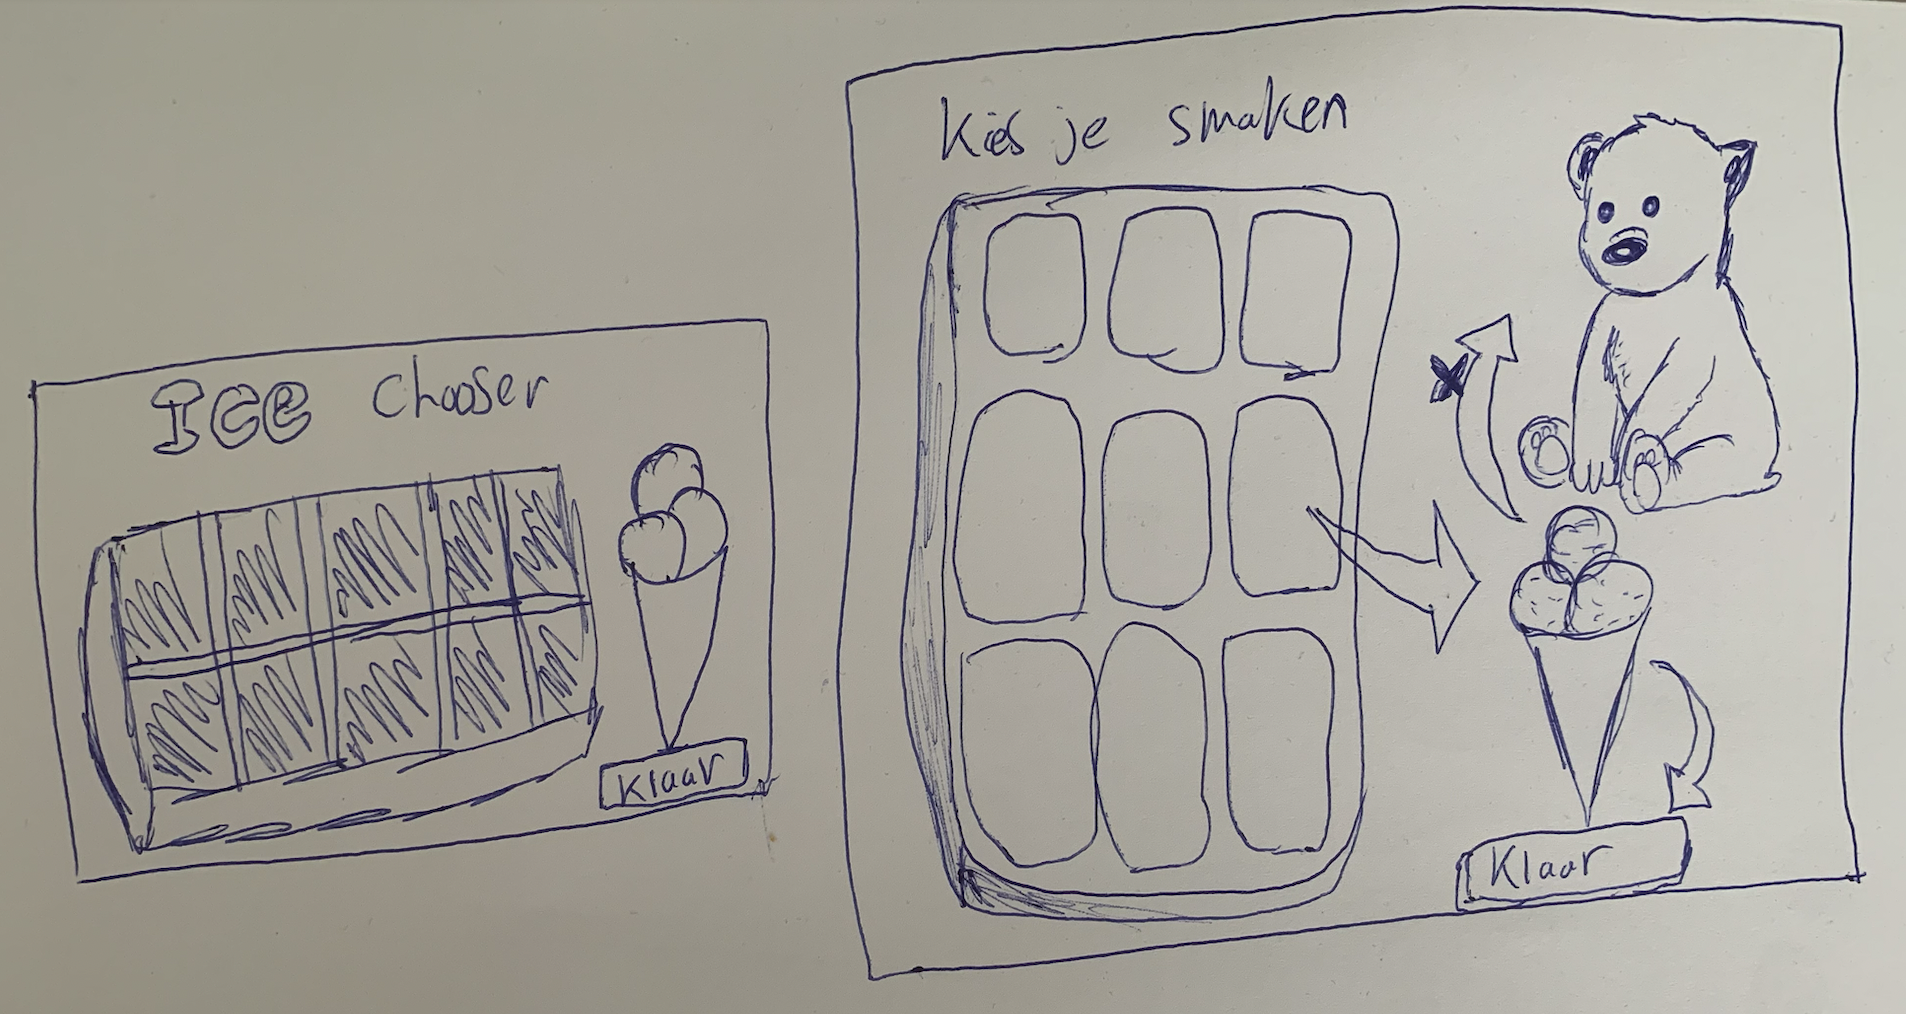 Ice chooser
Klaar
Kies je smaken
Klaar